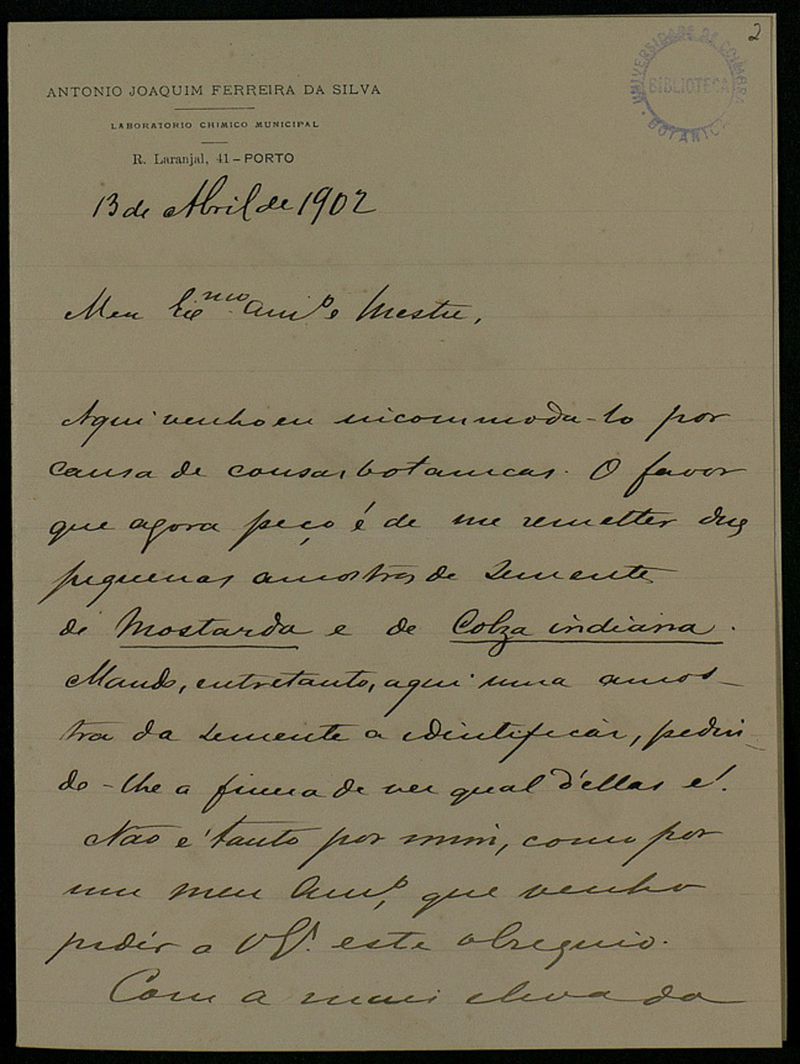 2
UNIVERSIDADE DE COIMBRA
BIBLIOTECA
BOTANICA
ANTONIO JOAQUIM FERREIRA DA SILVA
LABORATORIO CHIMICO MUNICIPAL
R. Laranjal, 41 – PORTO
13 de Abril de 1902
Meu Exmo Amo e Mestre,
Aqui venho eu incommoda-lo por
causa de cousas botanicas. O favor
que agora peço é de me remetter duas
pequenas amostras de semente
de Mostarda e de Colza indiana.
Mando, entretanto, aqui uma amos-
tra da semente a identificar, pedin-
do-lhe a fineza de ver qual d'ellas é.
Não é tanto por mim, como por
um meu Amo, que venho
pedir a V. este obsequio.
Com a mais elevada